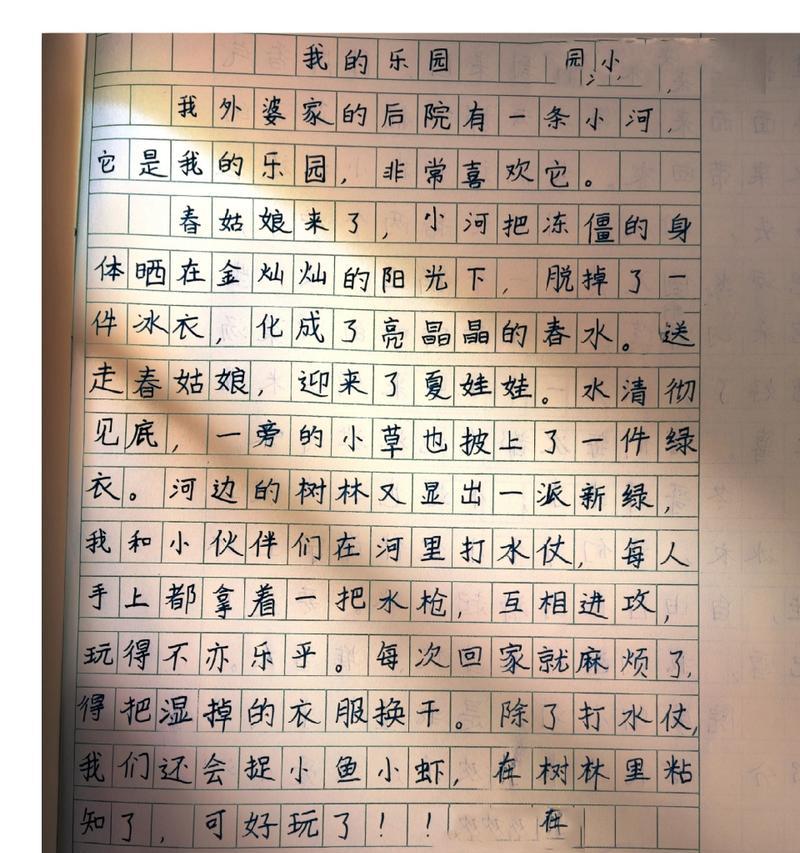 我的乐园 园小
我外婆家的后院有一条小河，
它是我的乐园，非常喜欢它。
春姑娘来了，小河把冻僵的身
体晒在金灿灿的阳光下，脱掉了一
件冰衣，化成了亮晶晶的春水。送
走春姑娘，迎来了夏娃娃。水清彻
见底，一旁的小草也披上了一件绿
衣。河边的树林又显出一派新绿，
我和小伙伴们在河里打水仗，每人
手上都拿着一把水枪，互相进攻，
玩得不亦乐乎。每次回家就麻烦了，
得把湿掉的衣服换干。除了打水仗，
我们还会捉小鱼小虾，在树林里粘
知了，可好玩了！！ 在